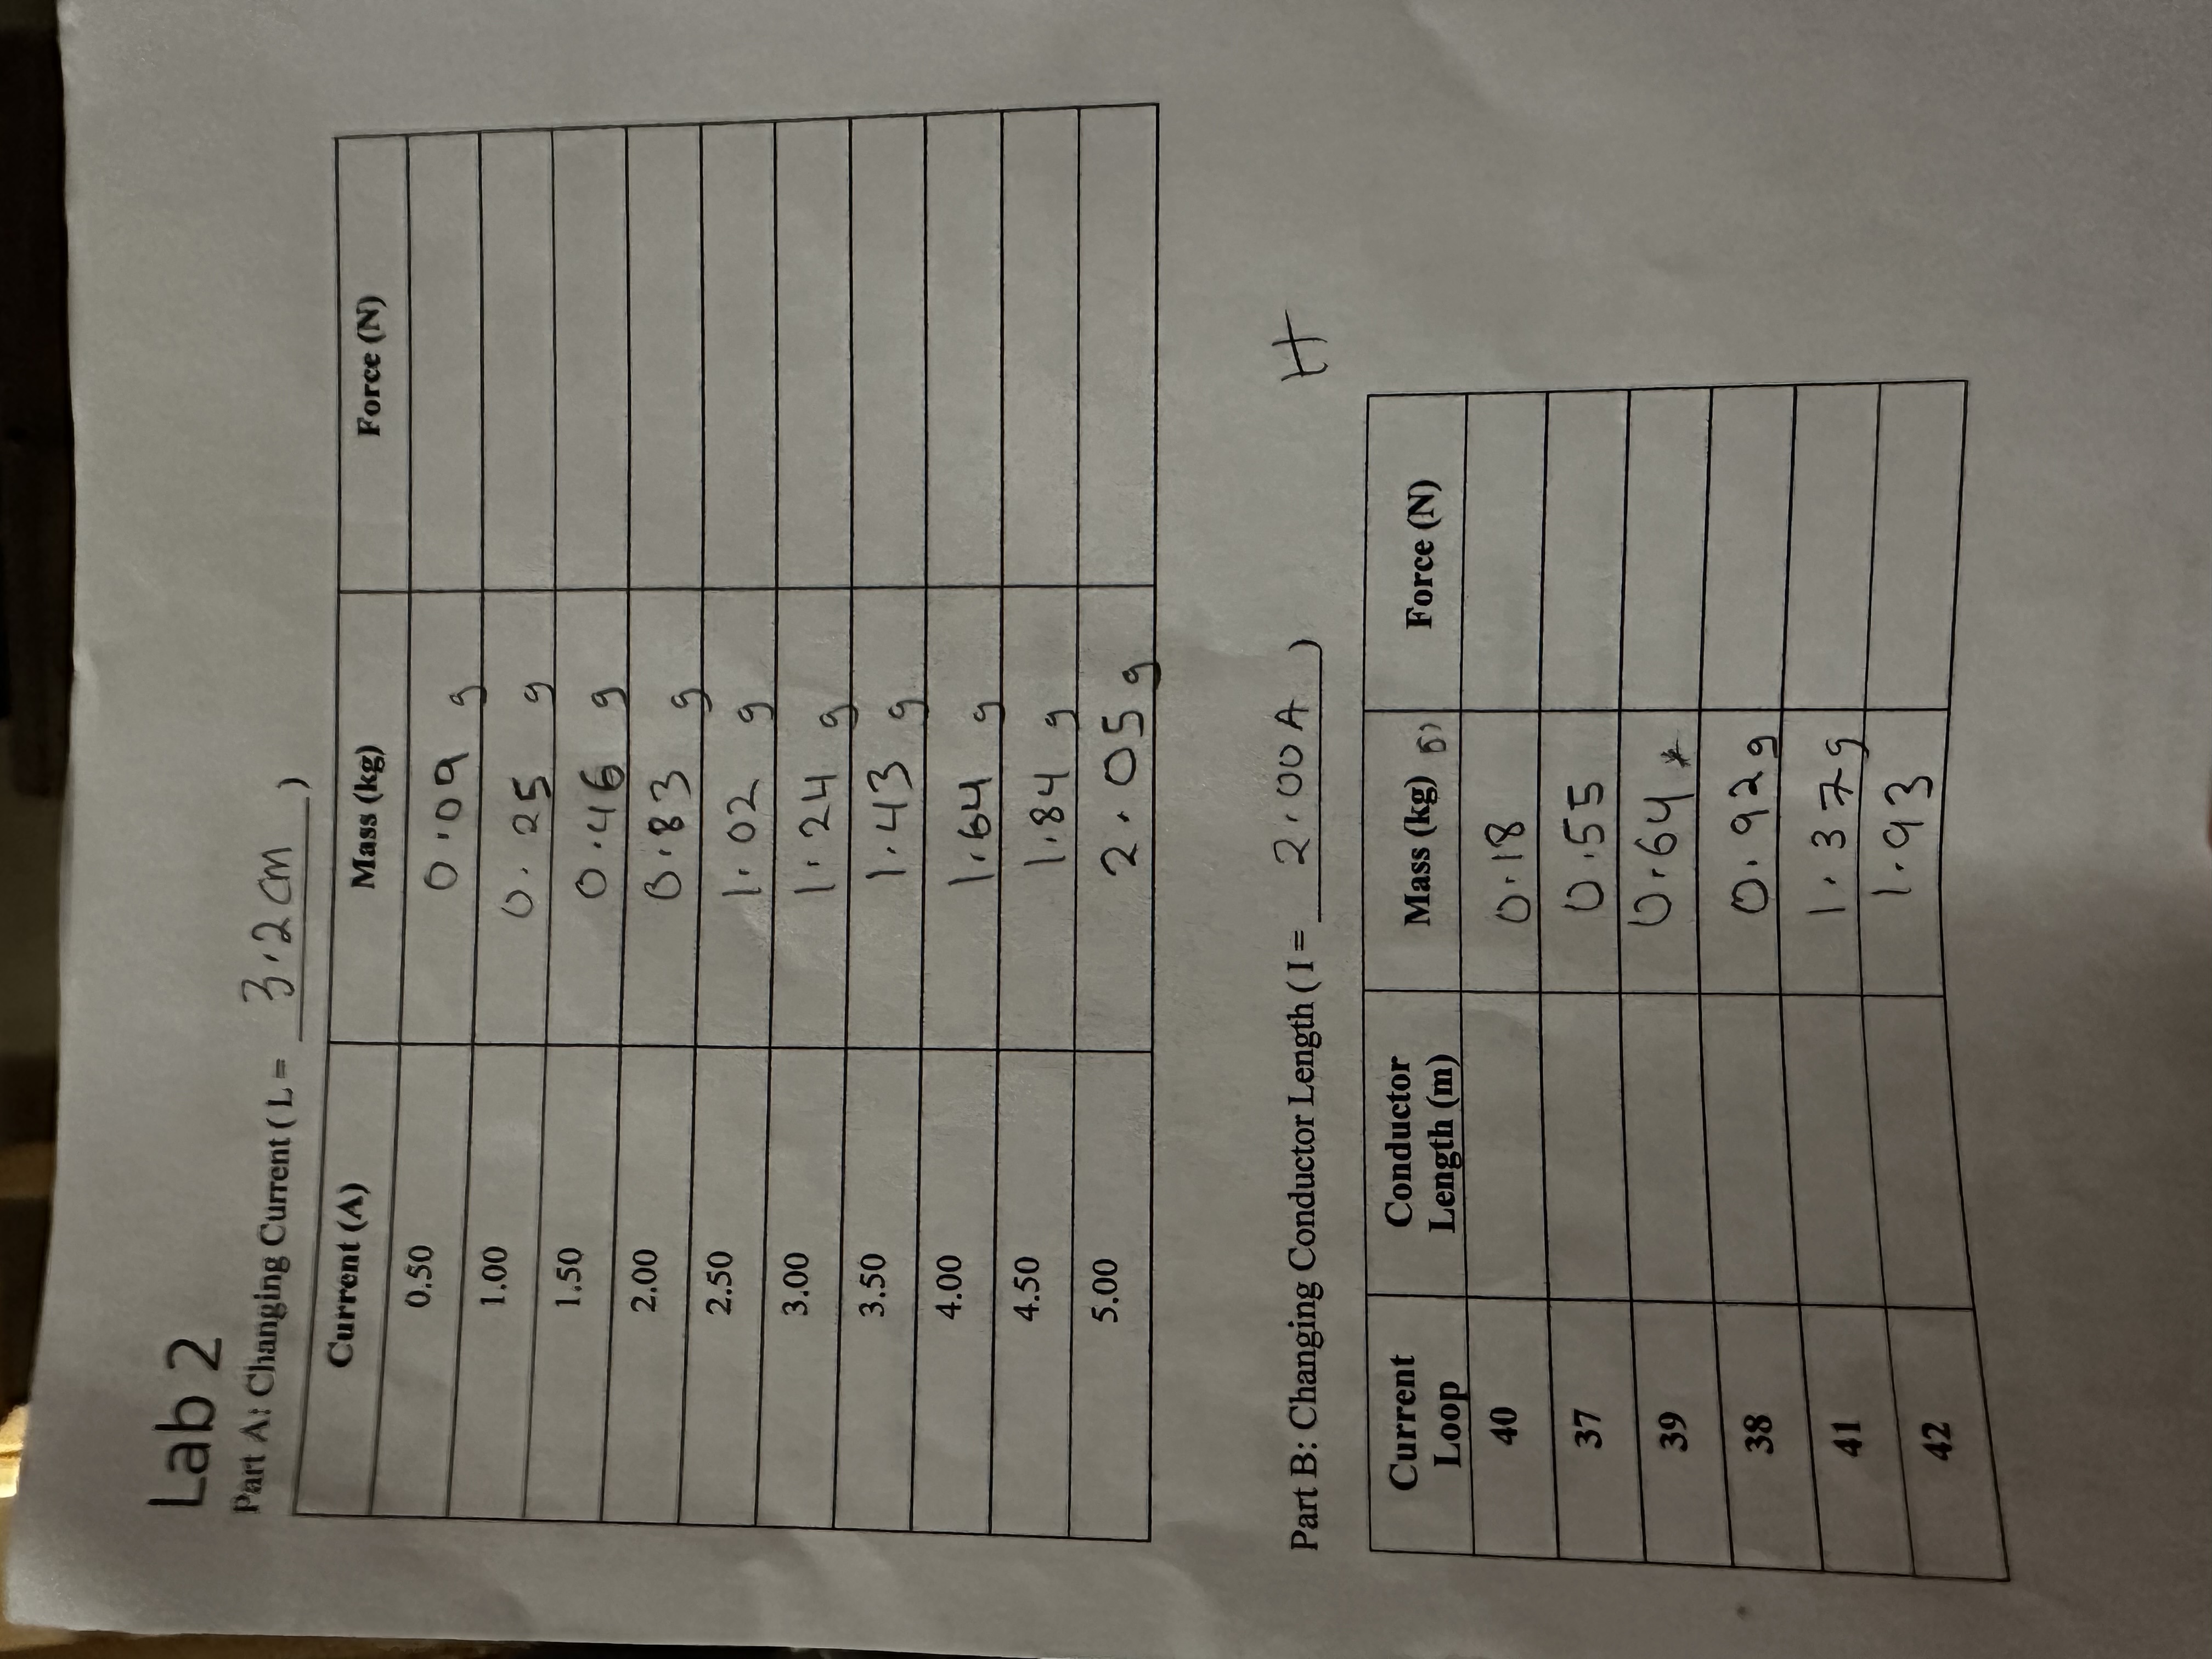 Lab 2
Part A: Changing Current ( L = 3.2 cm )
Current (A) Mass (kg) Force (N)
0.50 0.09 g
1.00 0.25 g
1.50 0.46 g
2.00 0.83 g
2.50 1.02 g
3.00 1.24 g
3.50 1.43 g
4.00 1.64 g
4.50 1.84 g
5.00 2.05 g
Part B: Changing Conductor Length ( I = 2.00 A )
Current Loop Conductor Length (m) Mass (kg) Force (N)
40 0.18
37 0.55
39 0.64 *
38 0.92 g
41 1.37 g
42 1.93